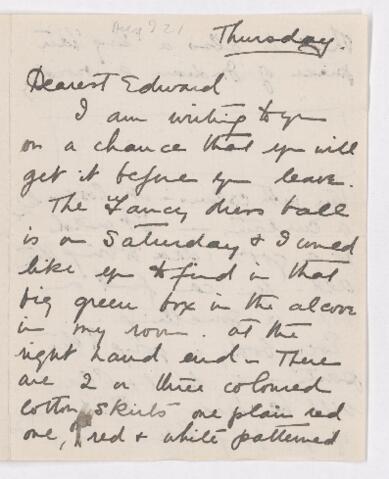 Thursday.
Dearest Edward
I am writing to you
on a chance that you will
get it before you leave.
The Fancy dress ball
is on Saturday & I would
like you to find in that
big green box in the alcove
in my room. at the
right hand end - There
are 2 or three coloured
cotton skirts one plain red
one, red & white patterned